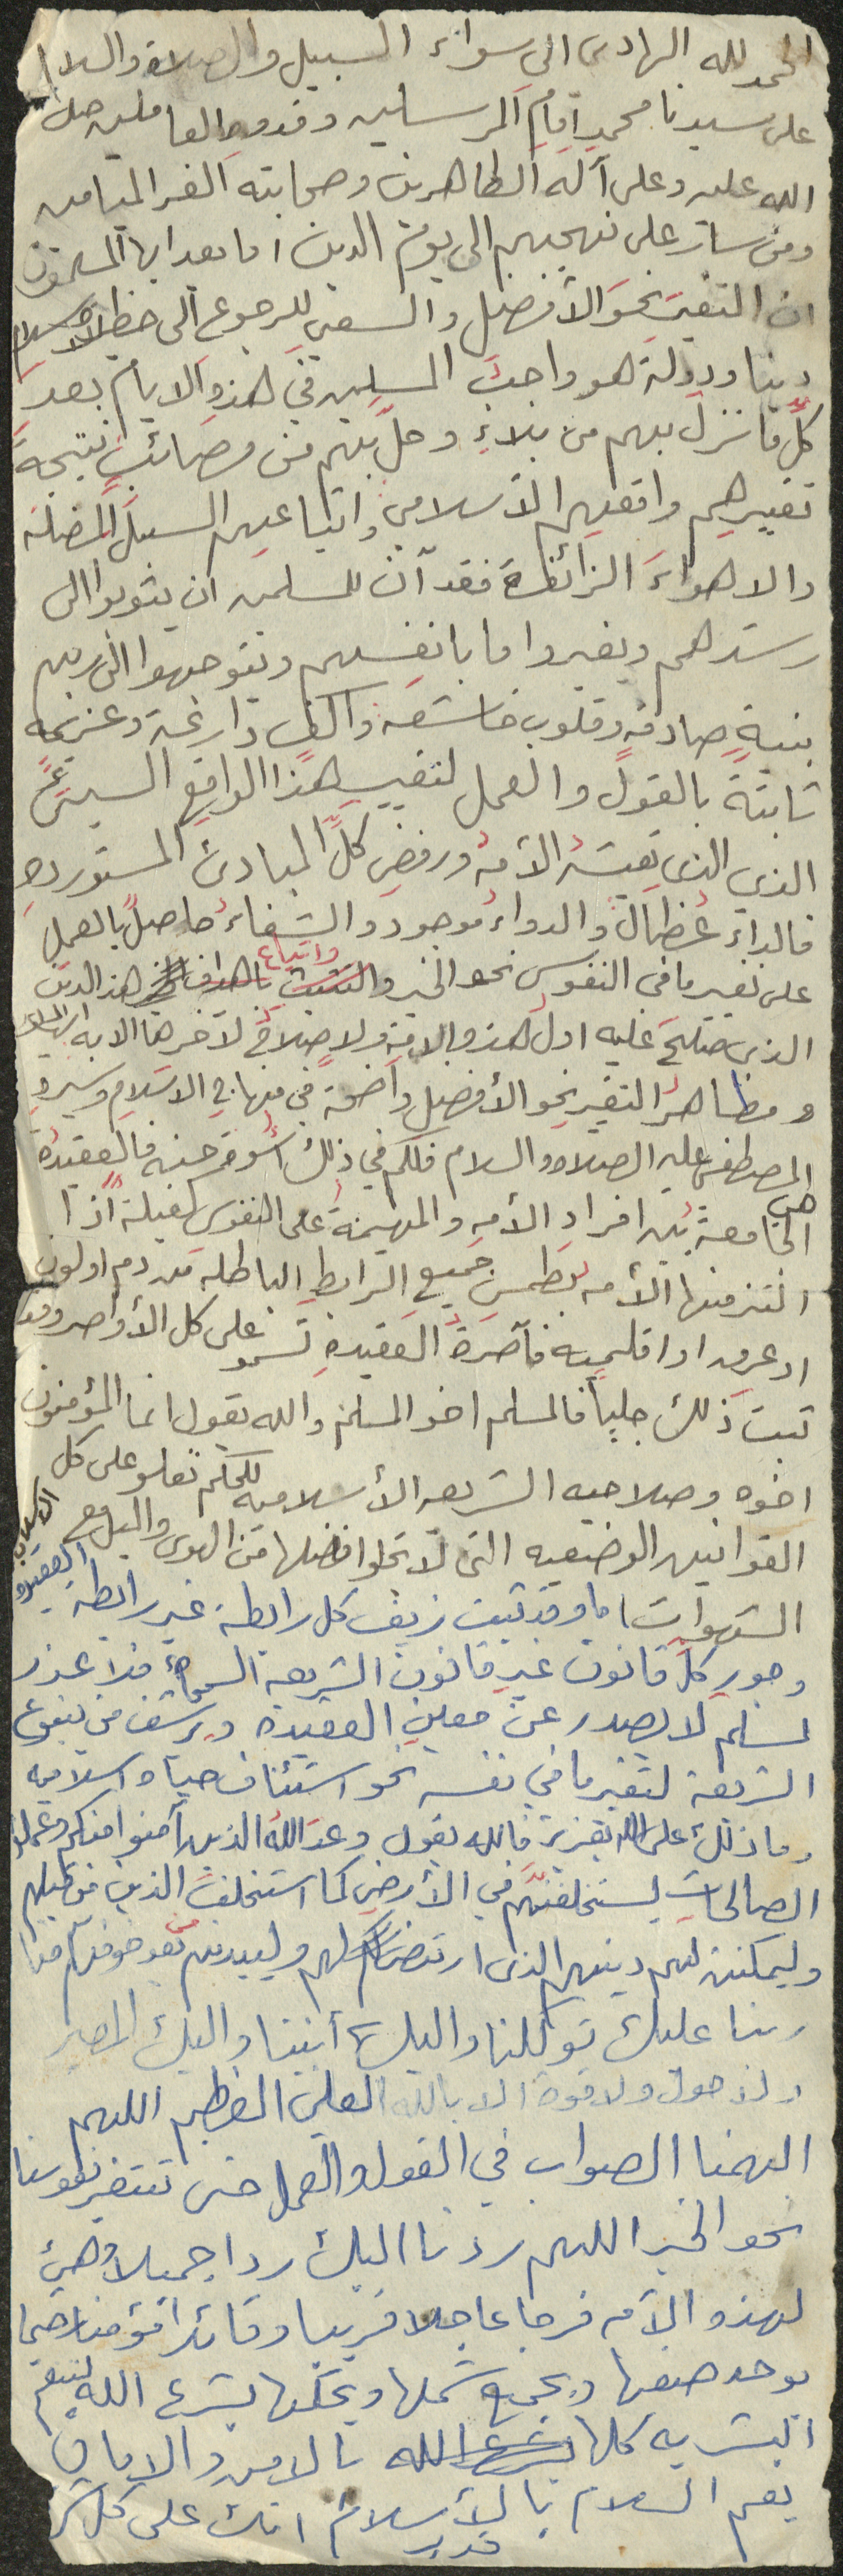 الحمد لله الهادي الى سواء السبيل والصلاة والسلام
على سيدنا محمد امام المرسلين وقدوة العاملين صلى
الله عليه وعلى آله الطاهرين وصحابته الغر الميامين
ومن سار على نهجهم الى يوم الدين اما بعد ايها المسلمون
ان التغير نحو الأفضل والسعي للرجوع الى الاسلام
دينا ودولة هو واجب المسلمين في هذه الايام بعد
كل ما نزل بهم من بلاء وحل بهم من مصائب نتيجة
تغييرهم واقعهم الاسلامي واتباعهم السبل المضلة
والاهواء الزائفة فقد آن للمسلمين ان يثوبوا الى
رشدهم ويغيروا ما بانفسهم ويتوجهوا الى ربهم
بنية صادقة وقلوب خاشعة واكف ضارعة وعزيمة
ثابتة بالقول والعمل لتغيير هذا الواقع السيئ
الذي الذي تعيشه الأمة ورفض كل المبادئ المستوردة
فالداء عضال والدواء موجود والشفاء حاصل بالعمل
على تغير ما في النفوس نحو الخير واتباع هذا الدين
الذي صلح عليه اول هذه الامة ولا صلاح لآخرها الا به
ومظاهر التغير نحو الأفضل واضحة في الاسلام وسيرة
المصطفى عليه الصلاة والسلام فلكم في ذلك اسوة حسنة فالعقيدة هي
الجامعة بين افراد الأمة والمهيمنة على النفوس كفيلة اذا
التزمتها الأمة بطمس جميع الروابط الباطلة من دم او لون
او عرق او اقليمية فآصرة العقيدة تسمو على كل الأواصر وقد
ثبت ذلك جليا فالمسلم اخو المسلم والله يقول انما المؤمنون
اخوة وصلاحية الشريعة الأسلامية للحكم تعلو على كل
القوانين الوضعية التي لا تخلوا افضلها من الهوى والميل مع
الشهوات اما وقد ثبت زيف كل رابطة غير رابطة العقيدة الاسلامية
وجور كل قانون غير قانون الشريعة السمحاء فلا عذر
لمسلم لا يصدر عن معين العقيدة ويرشف من ينبوع
الشريعة لتغير ما في نفسه نحو استئناف حياة اسلامية
وما ذلك على الله بعزيز فالله يقول وعد الله الذين آمنوا منكم وعملوا
الصالحات ليستخلفنهم في الأرض كما استخلف الذين من قبلهم
وليمكنن لهم دينهم الذي ارتضى لهم وليبدلنهم من بعد خوفهم امنا
ربنا عليك توكلنا واليك أنبنا واليك المصير
ولا حول ولا قوة الا بالله العلي العظيم اللهم
الهمنا الصواب في القول والعمل حتى تتغير نفوسنا
نحو الخير اللهم ردنا اليك ردا جميلا وهيئ
لهذه الأمة فرجا عاجلا قريبا وقائدا مؤمنا
يوحد صفها ويجمع شملها ويحكمها بشرع الله لتنعم
البشرية كلها بالامن والامان
يعم السلام بالأسلام انك على كل شئ
قدير